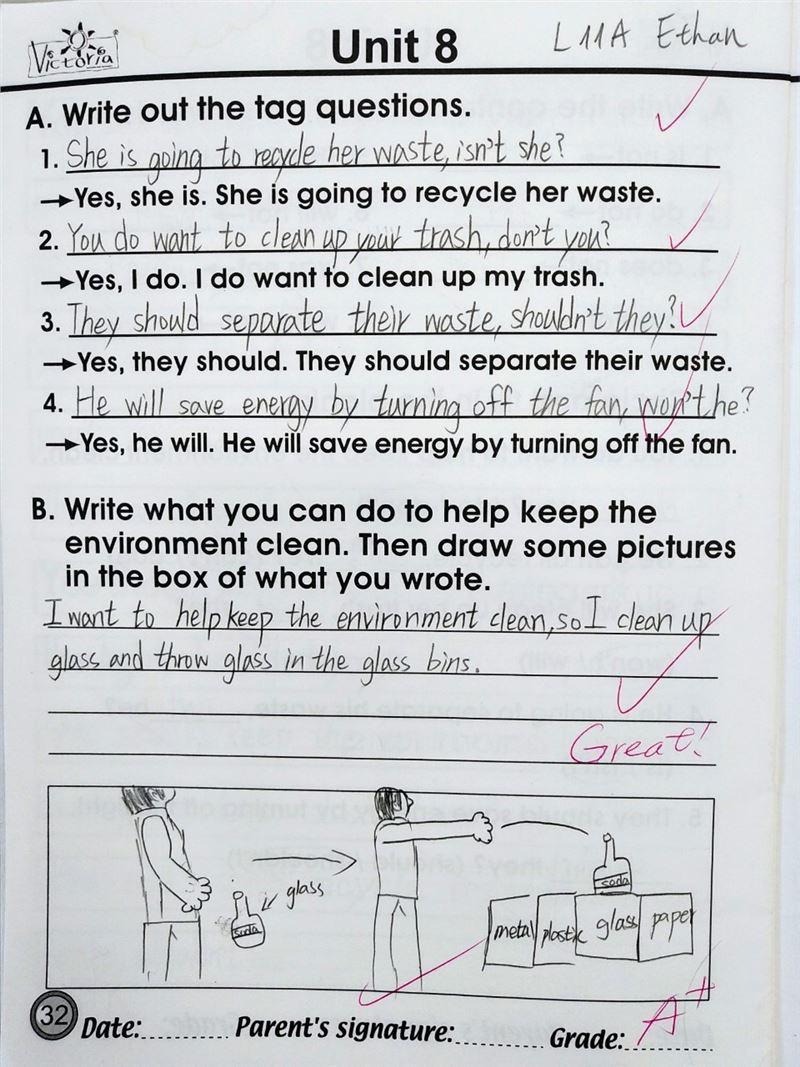 Victoria
Unit 8
L11A Ethan
A. Write out the tag questions.
1. She is going to recycle her waste, isn't she?
→Yes, she is. She is going to recycle her waste.
2. You do want to clean up your trash, don't you?
→Yes, I do. I do want to clean up my trash.
3. They should separate their waste, shouldn't they?
→Yes, they should. They should separate their waste.
4. He will save energy by turning off the fan, won't he?
→Yes, he will. He will save energy by turning off the fan.
B. Write what you can do to help keep the
environment clean. Then draw some pictures
in the box of what you wrote.
I want to help keep the environment clean, so I clean up
glass and throw glass in the glass bins.
Great!
glass
soda
soda
metal plastic glass paper
32 Date: Parent's signature: Grade: A+